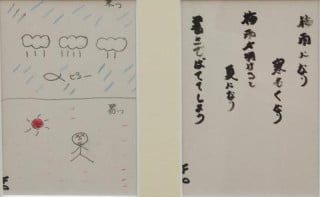 寒っ
ヒュー
暑っ
梅雨になり
寒むくなり
梅雨が明けると
夏になり
暑さでばててしまう